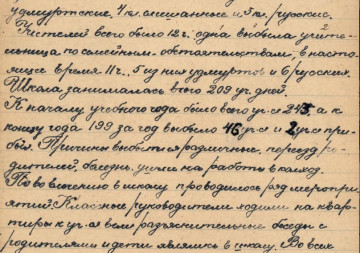 удмуртские, 4 кл. смешанные и 3 кл. русские.
Учителей всего было 12 ч. одна выбыла учите-
льница по семейным обстоятельствам, в насто-
ящее время 11 ч., 5 из них удмуртов и 6 русских.
Школа занималась всего 209 уч. дней.
К началу учебного года было всего уч-ся 245, а к
концу года 199 за год выбыло 46 уч-ся и 2 уч-ся при-
был. Причины выбытия различные, переезд ро-
дителей, бедность, ушли на работы в колхоз.
По вовлечению в школу проводилось ряд меропри-
ятий. Классные руководители ходили на квар-
тиры к уч-ся вели разъяснительные беседы с
родителями и дети являлись в школу. Во всех